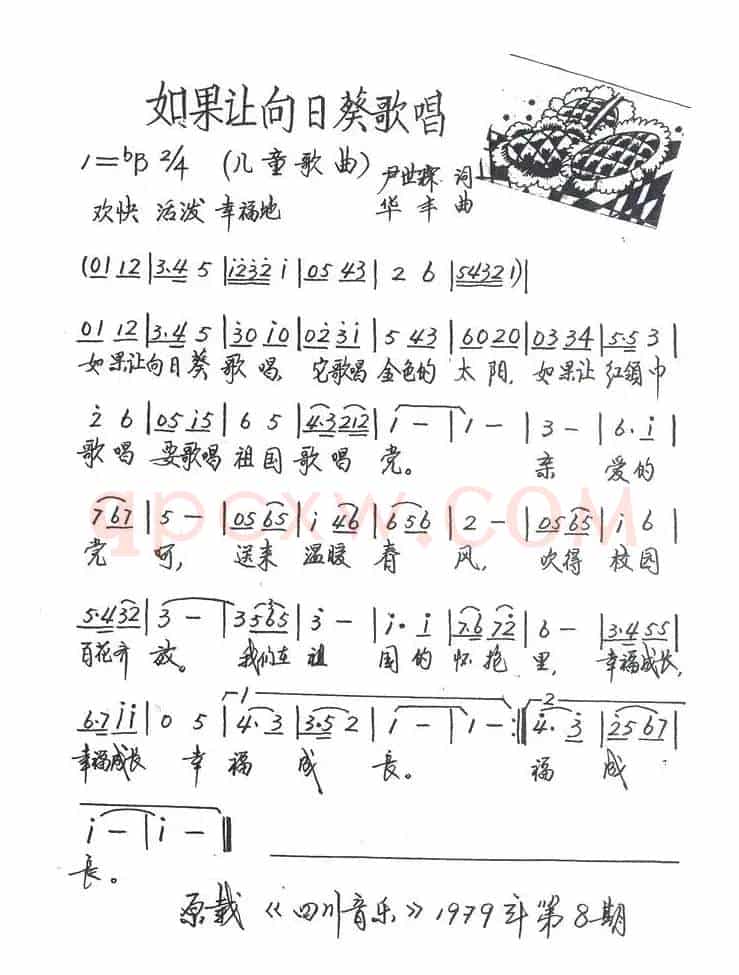 如果让向日葵歌唱
1=bB 2/4 (儿童歌曲) 尹世霖 词
欢快 活泼 幸福地 华丰 曲
(01 12 | 3·4 5 | i232 i | 05 43 | 2 6 | 54321) |
01 12 | 3·4 5 | 30 i0 | 02 3i | 5 43 | 60 20 | 03 34 | 5·5 3 |
如果让向日葵歌唱, 它歌唱金色的太阳, 如果让红领巾
2 6 | 05 i5 | 6 5 | 4·3 212 | i - | i - | 3 - | 6·i |
歌唱 要歌唱祖国歌唱党。 亲爱的
767 | 5 - | 05 65 | i 46 | 656 | 2 - | 05 65 | i 6 |
党呵, 送来温暖春风, 吹得校园
qpcxw.com
5·4 32 | 3 - | 3 565 | 3 - | i·i | 7·6 72 | 6 - | 3·4 55 |
百花齐放。 我们在祖国的怀抱里, 幸福成长,
6·7 ii | 0 5 | 1 4·3 | 3·5 2 | i - | i - :‖ 2 4·3 | 2567 |
幸福成长 幸福成长。 福成
i - | i - ‖
长。
原载《四川音乐》1979年第8期